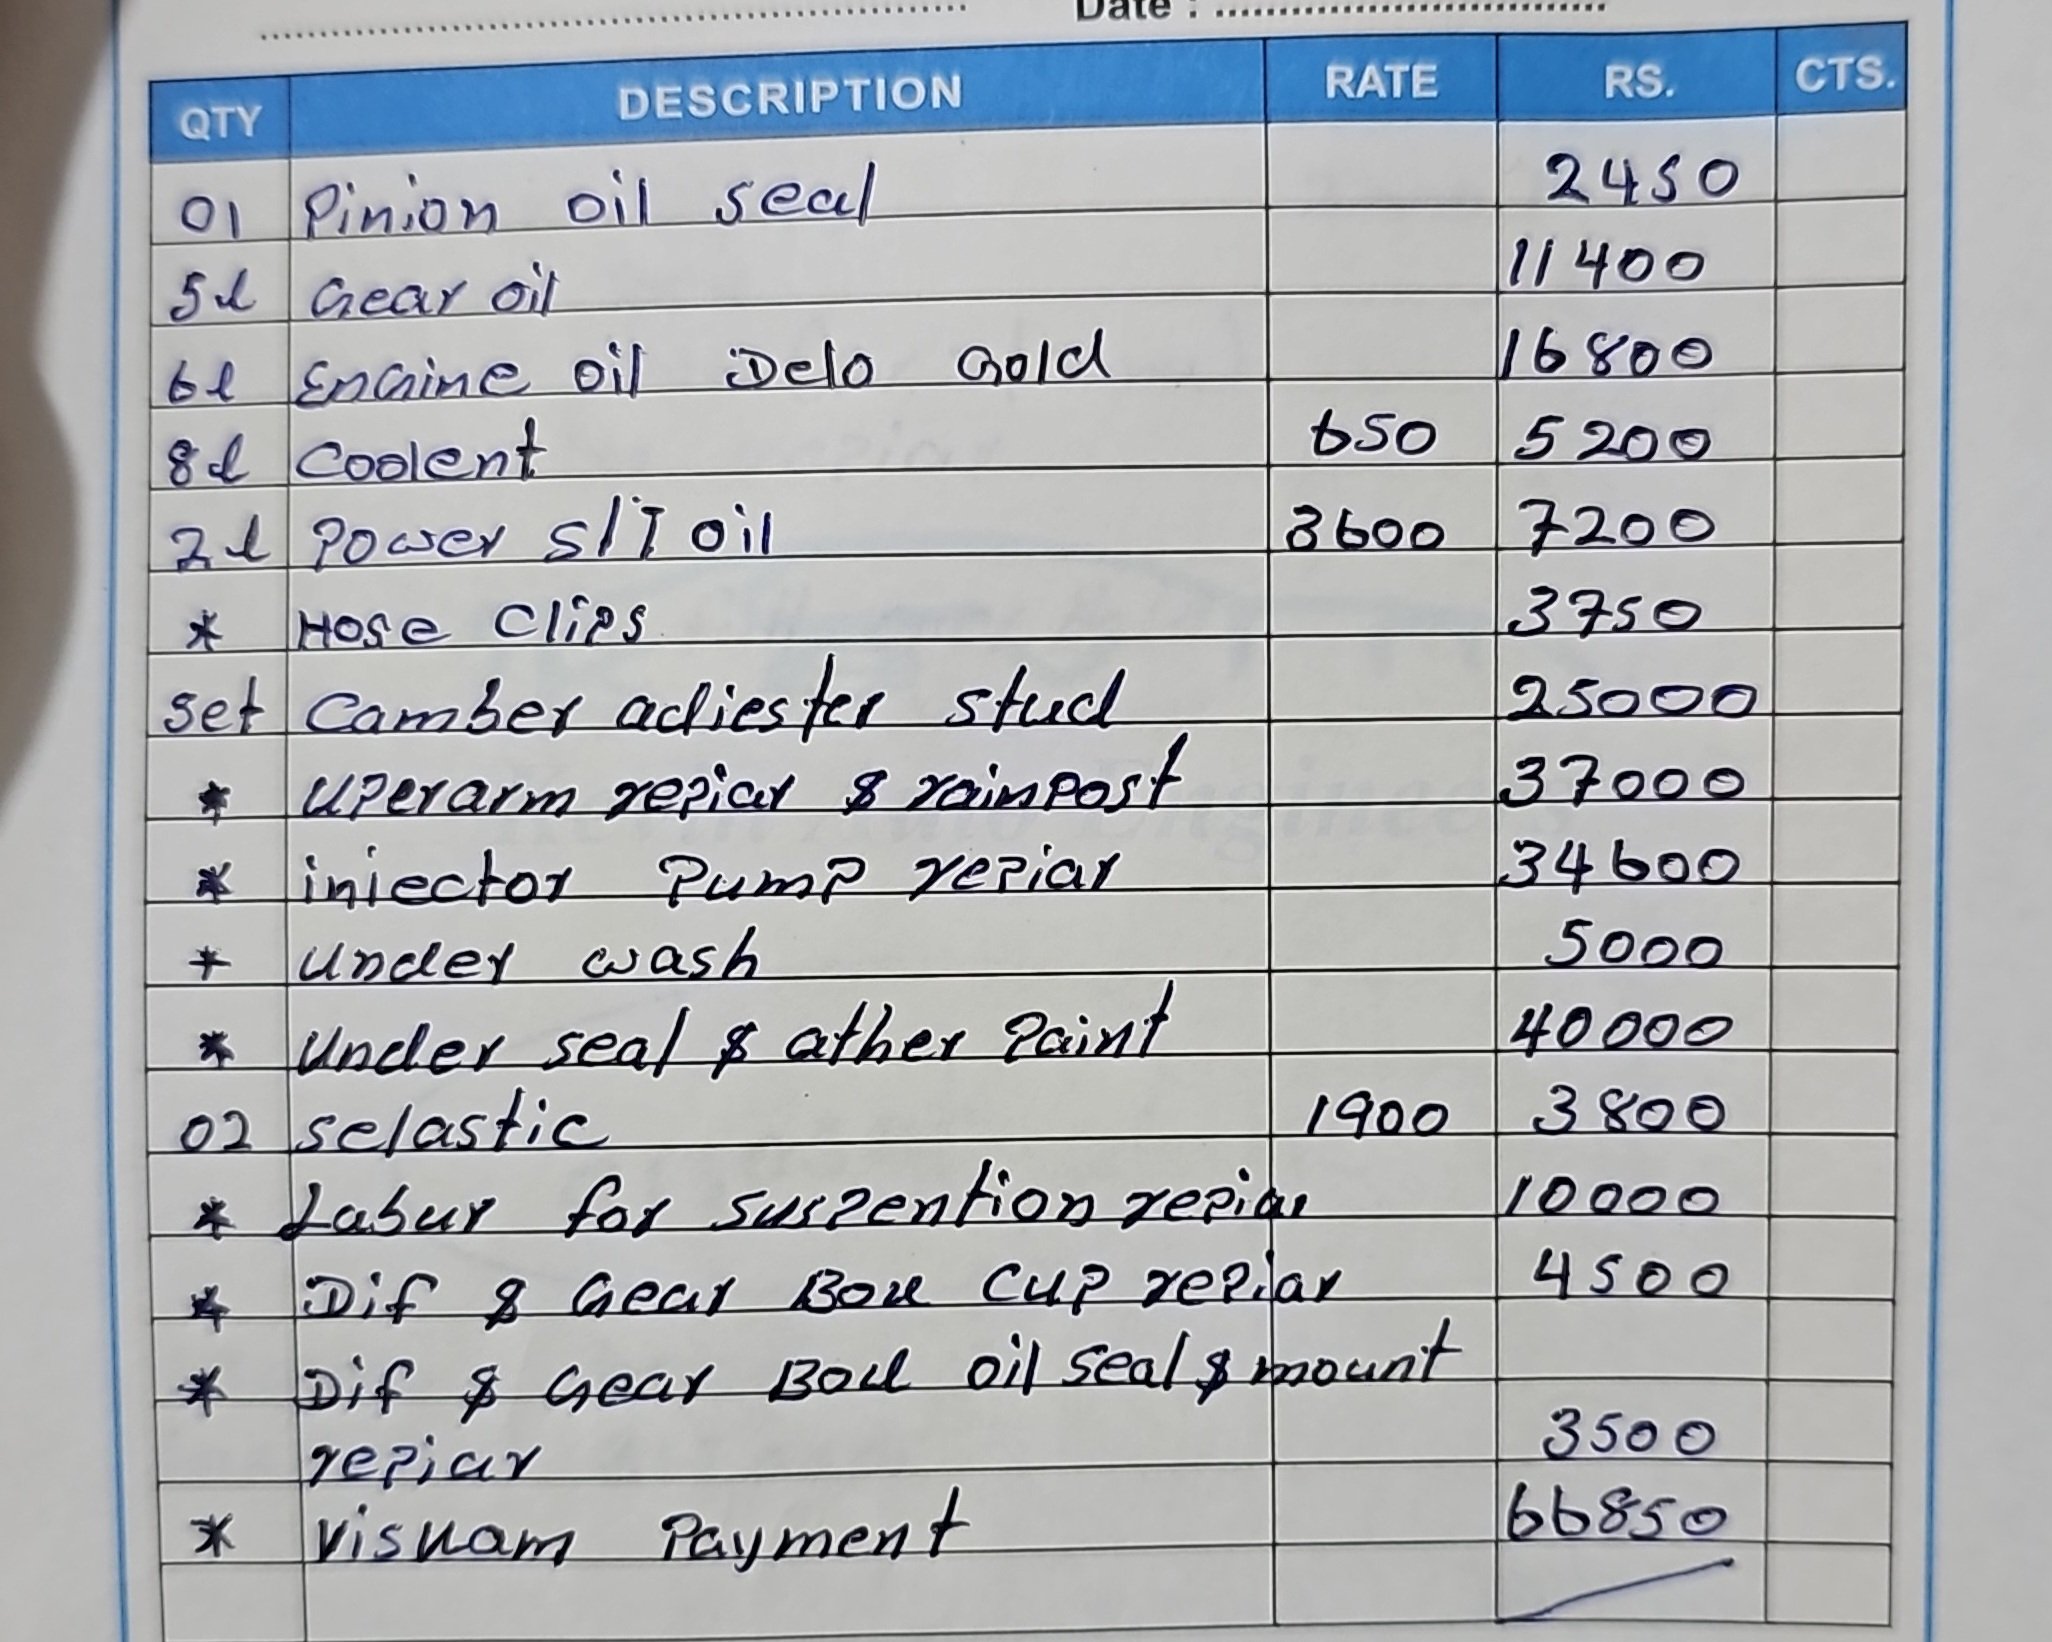 Date : ....................................
QTY DESCRIPTION RATE RS. CTS.
01 Pinion oil seal 2450
5l Gear oil 11400
6l Engine oil Delo Gold 16800
8l Coolent 650 5200
2l Power S/T oil 3600 7200
* Hose Clips 3750
set Camber adiester stud 25000
* uperarm repiar & rainpost 37000
* iniector Pump repiar 34600
* Under wash 5000
* Under seal & ather Paint 40000
02 selastic 1900 3800
* Labur for suspention repiar 10000
* Dif & Gear Box Cup repiar 4500
* Dif & Gear Box oil seal & mount
repiar 3500
* Payment 66850